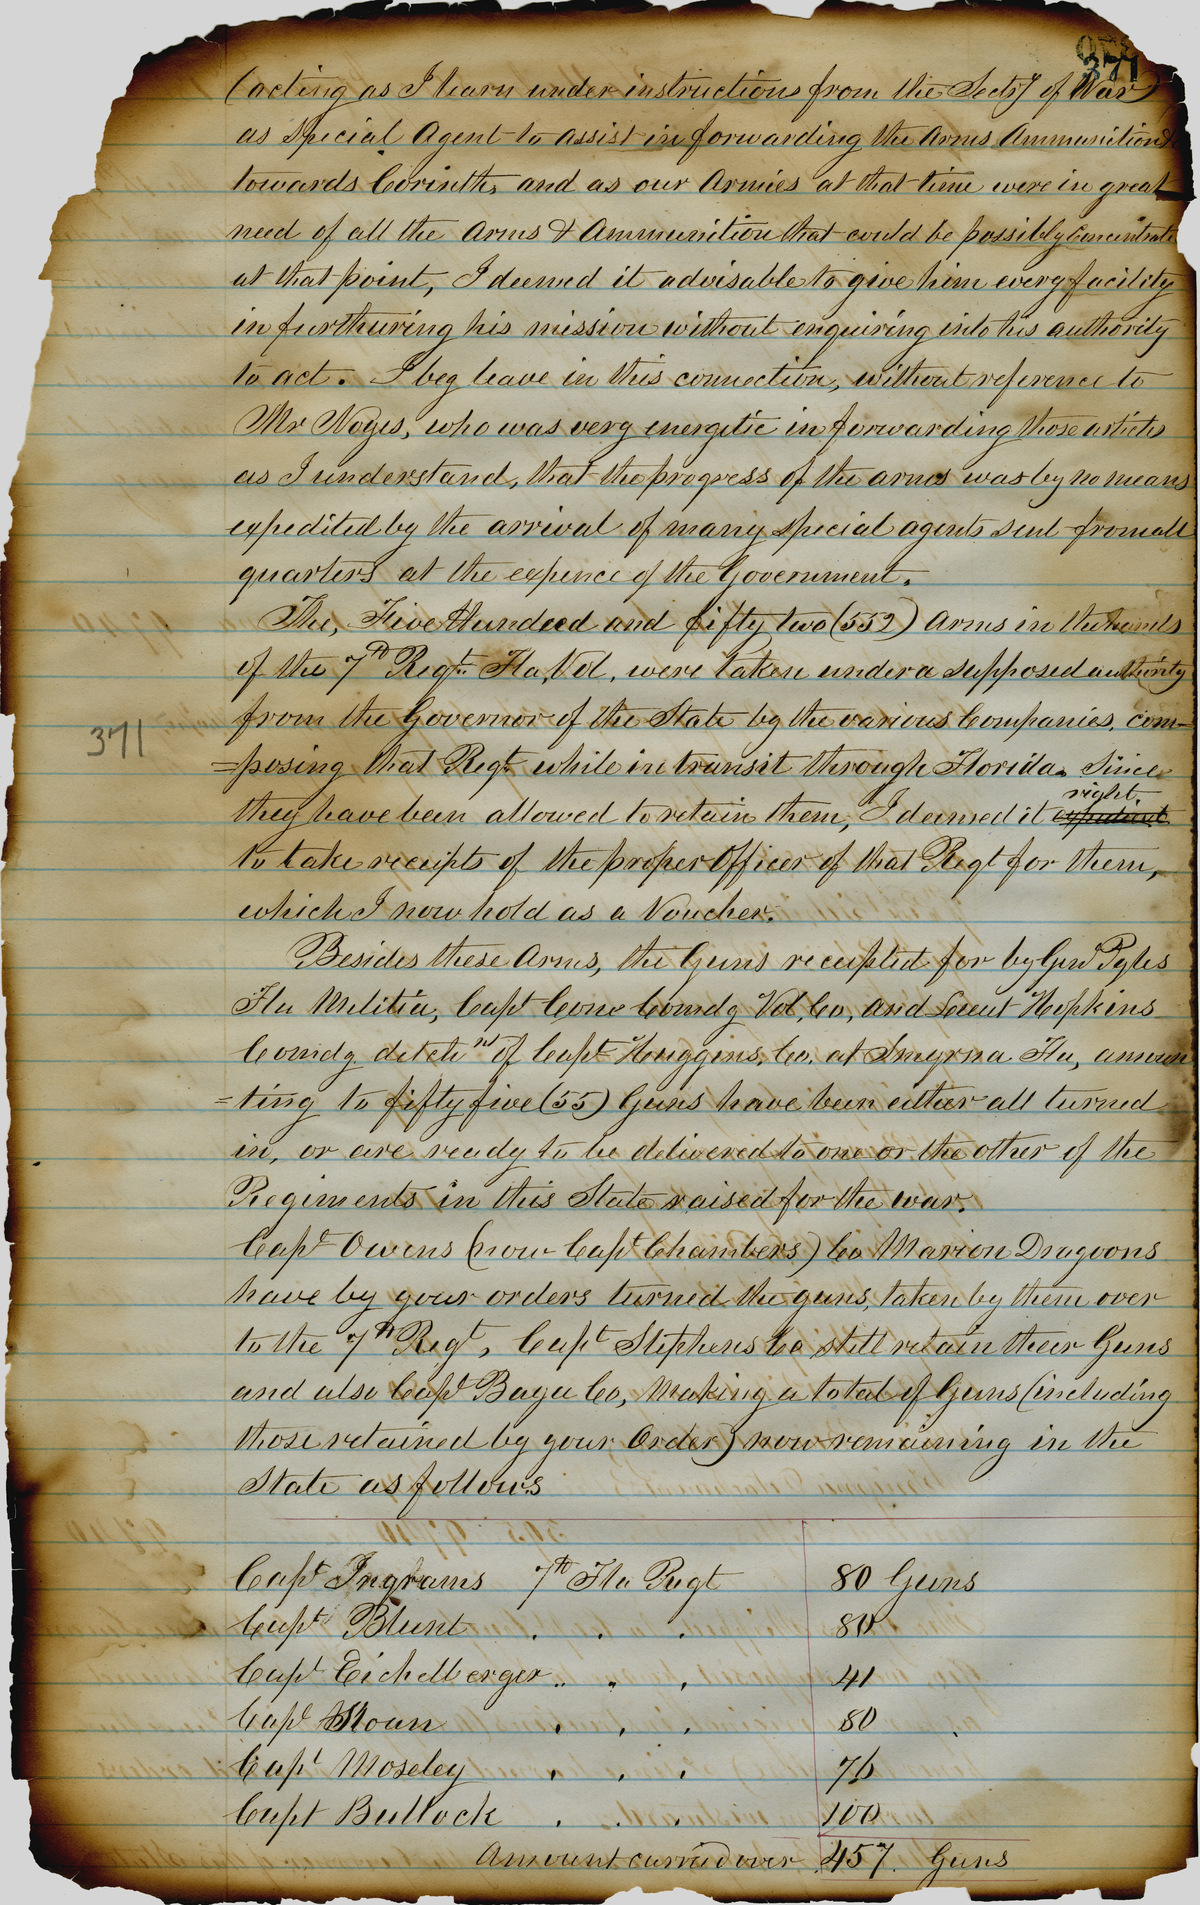 371
(acting as I learn under instructions from the Secty of War)
as special Agent to assist in forwarding the Arms Ammunition &
towards Corinth, and as our Armies at that time were in great
need of all the Arms & Ammunition that could be possibly concentrate
at that point, I deemed it advisable to give him every facility
in furthuring his mission without enquiring into his authority
to act. I beg leave in this connection, without reference to
Mr Noyes, who was very energetic in forwarding those articles
as I understand, that the progress of the arms was by no means
expedited by the arrival of many special agents sent from all
quarters at the expence of the Government.
The, Five Hundred and fifty two (552) Arms in the hands
of the 7th Regt. Fla, Vol, were taken under a supposed authority
from the Governor of the State by the various Companies, com-
371
=posing that Regt while in transit through Florida. Since
right
they have been allowed to retain them, I deemed it expedient
to take receipts of the proper Officer of that Regt for them,
which I now hold as a Voucher.
Besides these Arms, the Guns receipted for by Genl Pyles
Fla Militia, Capt Cone Comdg Vol, Co, and Lieut Hopkins
Comdg ditch nt of Capt Huggins, Co, at Smyrna Fla, amoun
=ting to fifty five (55) Guns have been either all turned
in, or are ready to be delivered to one or the other of the
Regiments in this State raised for the war.
Capt Owens (now Capt Chambers) Co Marion Dragoons
have by your orders turned the guns, taken by them over
to the 7th Regt, Capt Stephens Co still retain their Guns
and also Capt Baya Co, Making a total of Guns (including
those retained by your Order) now remaining in the
State as follows
Capt Ingrams 7th Fla Regt 80 Guns
Capt Blunt . . . 80
Capt Eichelberger .. .. . 41
Capt Sloan . . . 80
Capt Moseley . . . 76
Capt Bullock . . . 100
Amount carried over 457. Guns